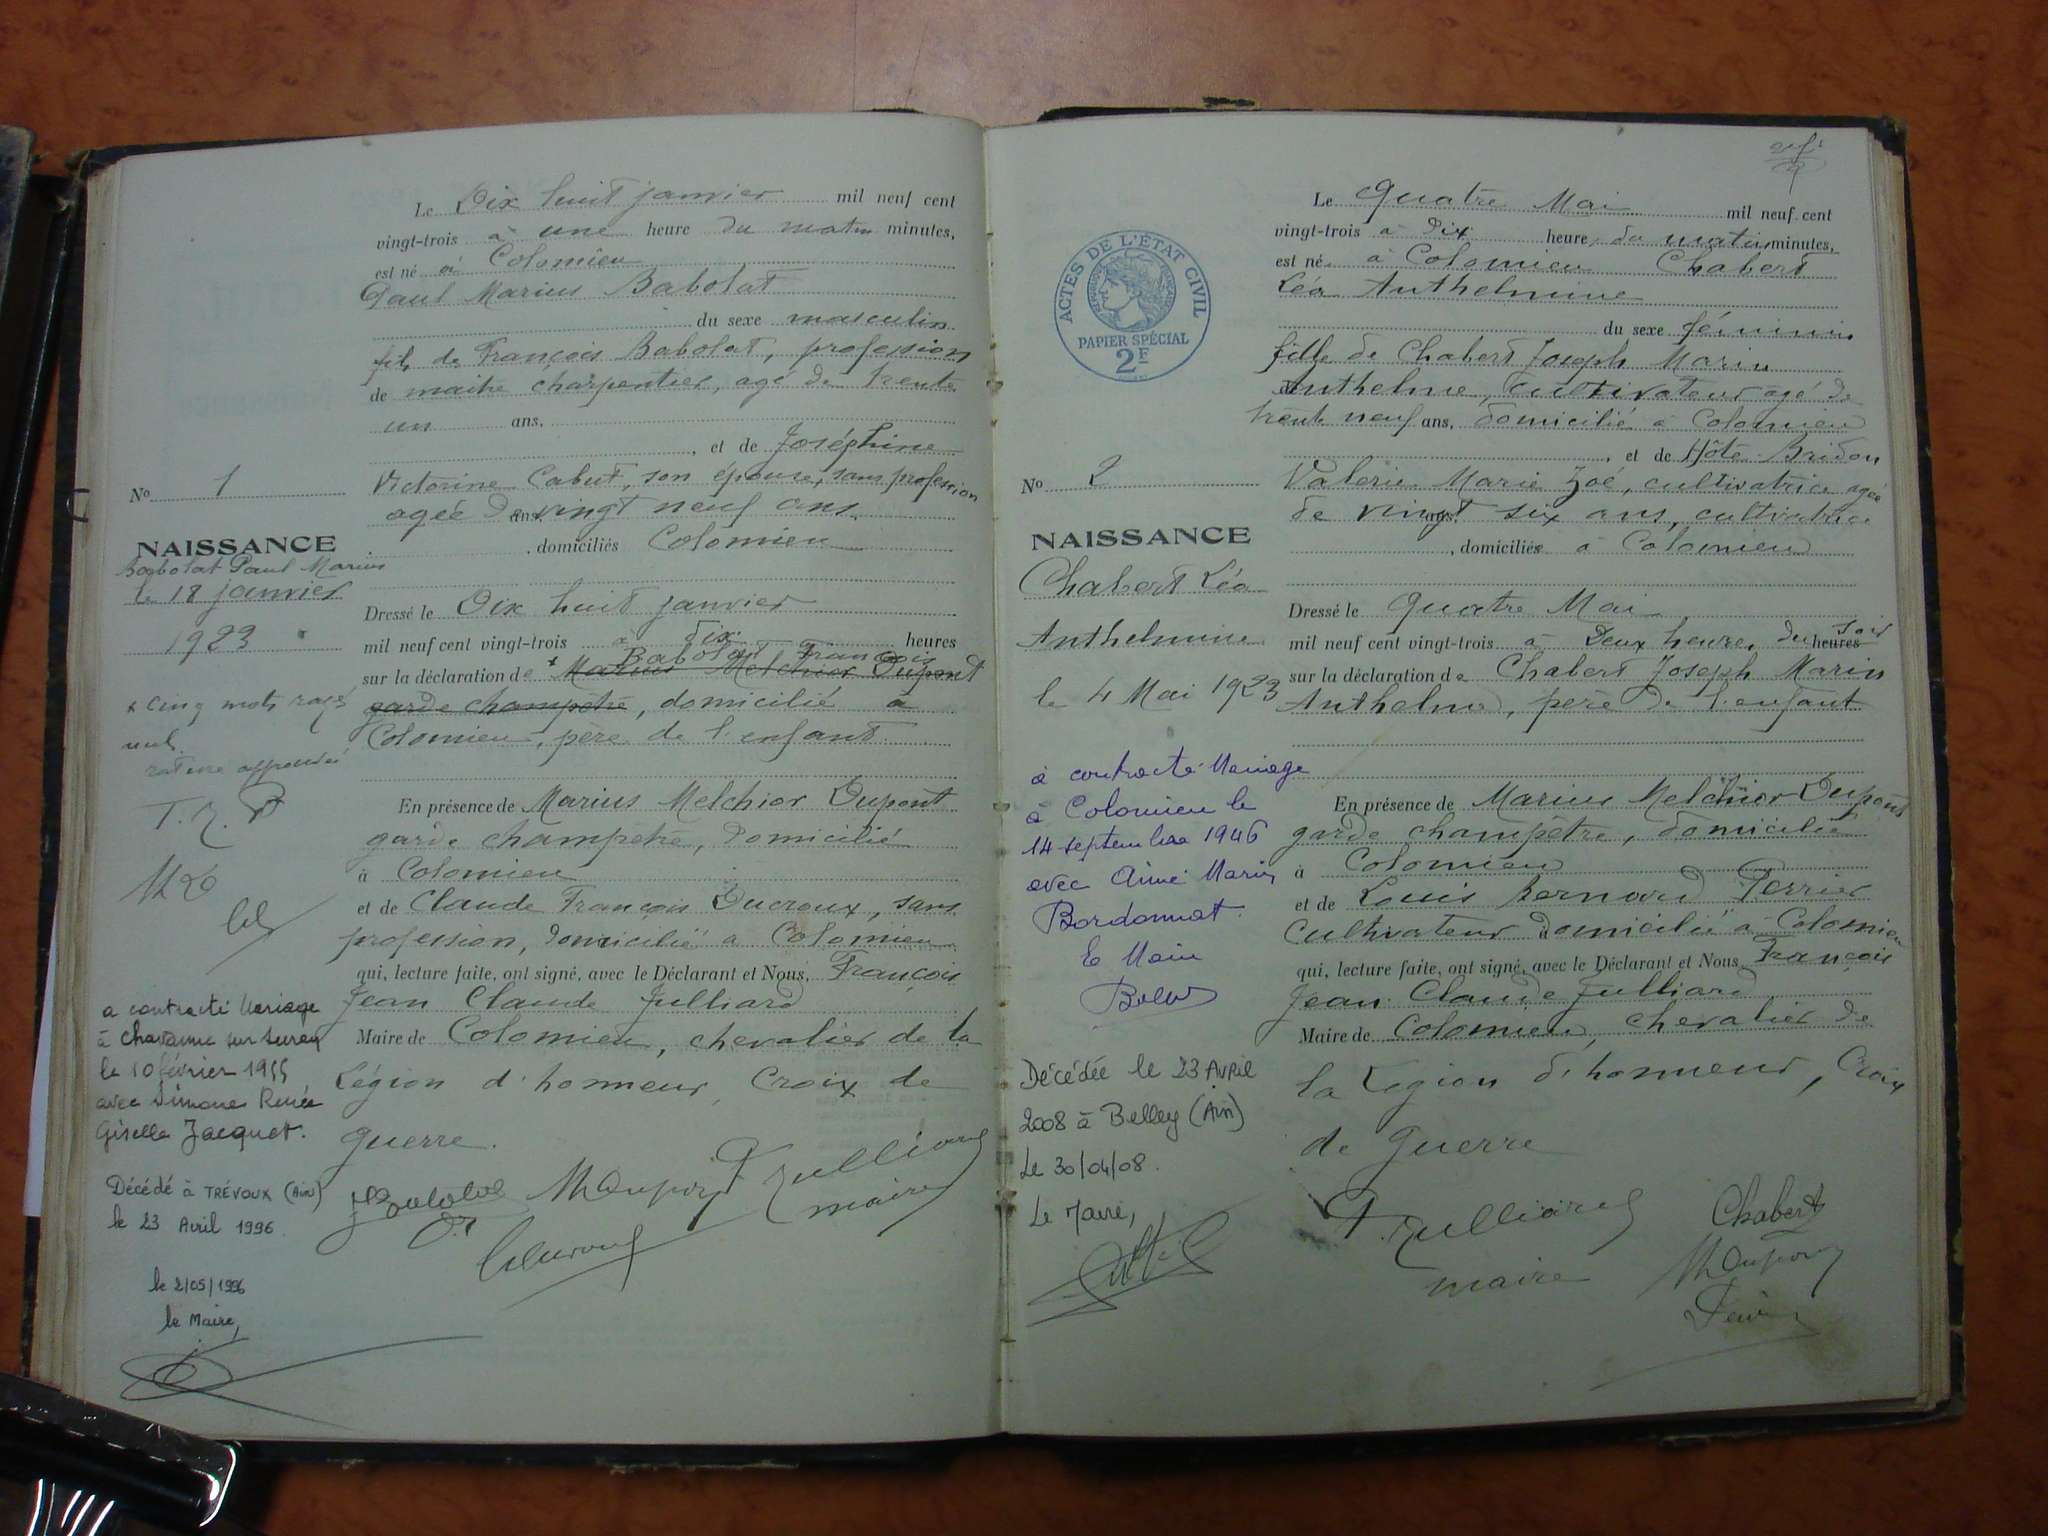 Le Dix huit janvier mil neuf cent
vingt-trois à une heure du matin minutes,
est né à Colomieu
Paul Marius Babolat
du sexe masculin
fils de François Babolat, profession
de maitre charpentier, agé de trente
un ans,
, et de Joséphine
No 1
Victorine Cabut, son épouse, sans profession
agée de vingt neuf ans.
ans,
, domiciliés Colomieu
NAISSANCE
Babolat Paul Marius
le 18 janvier
1923
Dressé le Dix huit janvier
mil neuf cent vingt-trois à dix heures
Babolat François
sur la déclaration de x Marius Melchior Dupont
garde champêtre, domicilié à
Colomieu, père de l'enfant.
x cinq mots rayés
nuls
rature approuvée
En présence de Marius Melchior Dupont
garde champêtre, domicilié
à Colomieu
et de Claude François Ducroux, sans
profession, domicilié à Colomieu
qui, lecture faite, ont signé, avec le Déclarant et Nous, François
Jean Claude Julliard
Maire de Colomieu, chevalier de la
Légion d'honneur, Croix de
guerre.
a contracté Mariage
à Chavannes sur Suran
le 10 février 1955
avec Simone Renée
Giselle Jacquet.
Décédé à TRÉVOUX (Ain)
le 23 Avril 1996
le 2/05/1996
le Maire,
MDupont
F Julliard
maire
Le Quatre Mai mil neuf cent
vingt-trois à Dix heure du matin minutes,
est né à Colomieu Chabert
Léa Anthelmine
du sexe féminin
fille de Chabert Joseph Marin
Anthelme, cultivateur agé de
trente neuf ans, domicilié à Colomieu
, et de Hôte Bridon
ACTES DE L'ÉTAT CIVIL
PAPIER SPÉCIAL
2F
No 2
Valérie Marie Zoé, cultivatrice agée
de vingt six ans, cultivatrice
ans,
, domiciliés à Colomieu
NAISSANCE
Chabert Léa
Anthelmine
le 4 Mai 1923
Dressé le Quatre Mai
mil neuf cent vingt-trois à Deux heure, du soir heures
sur la déclaration de Chabert Joseph Marin
Anthelme, père de l'enfant
à contracté Mariage
à Colomieu le
14 septembre 1946
avec Aimé Marin
Bordonnat.
Le Maire
En présence de Marius Melchior Dupont
garde champêtre, domicilié
à Colomieu
et de Louis Bernard Perrier
Cultivateur domicilié à Colomieu
qui, lecture faite, ont signé, avec le Déclarant et Nous, François
Jean Claude Julliard
Maire de Colomieu, chevalier de
la Légion d'honneur, Croix
de guerre
Décédée le 23 Avril
2008 à Belley (Ain)
Le 30/04/08.
Le Maire,
F. Julliard
maire
Chabert
MDupont